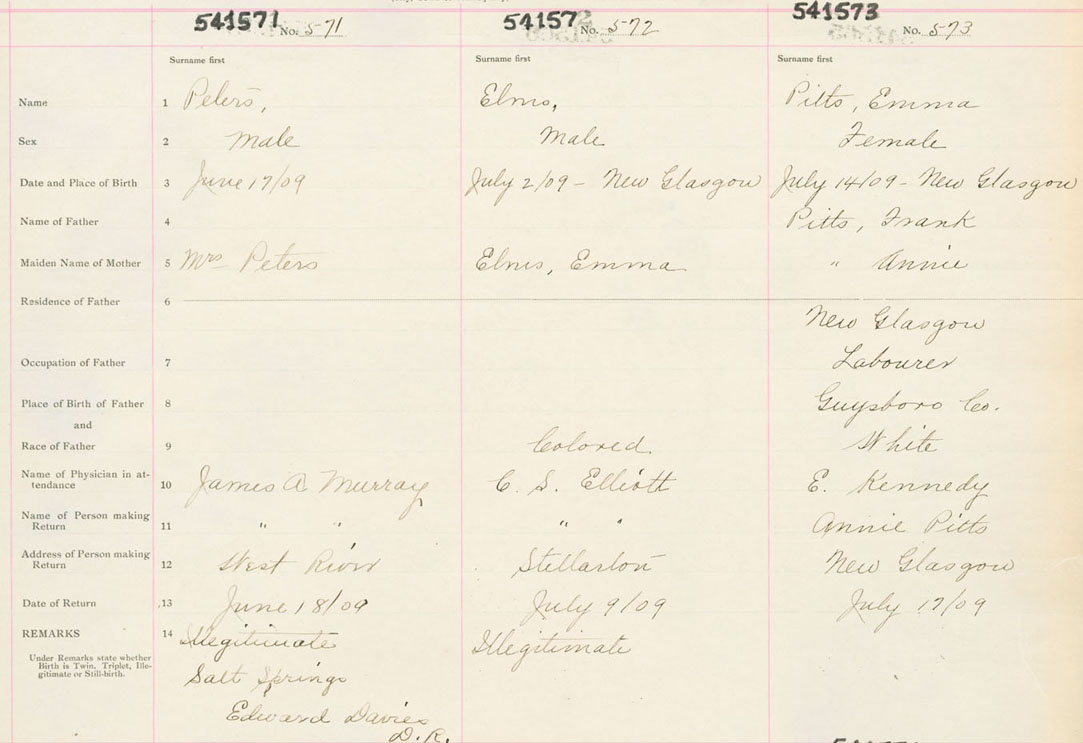 541571 No. 571 541572 No. 572 541573 No. 573
Surname first Surname first Surname first
Name 1 Peters, Elms, Pitts, Emma
Sex 2 Male Male Female
Date and Place of Birth 3 June 17/09 July 2/09 - New Glasgow July 14/09 - New Glasgow
Name of Father 4 Pitts, Frank
Maiden Name of Mother 5 Mrs Peters Elms, Emma " Annie
Residence of Father 6
New Glasgow
Occupation of Father 7 Labourer
Place of Birth of Father 8 Guysboro Co.
and
Race of Father 9 Colored White
Name of Physician in at-
tendance 10 James A Murray C. S. Elliott E. Kennedy
Name of Person making
Return 11 " " " " Annie Pitts
Address of Person making
Return 12 West River Stellarton New Glasgow
Date of Return 13 June 18/09 July 9/09 July 17/09
REMARKS 14 Illegitimate Illegitimate
Under Remarks state whether
Birth is Twin, Triplet, Ille-
gitimate or Still-birth.
Salt Springs
Edward Davies
D.R.